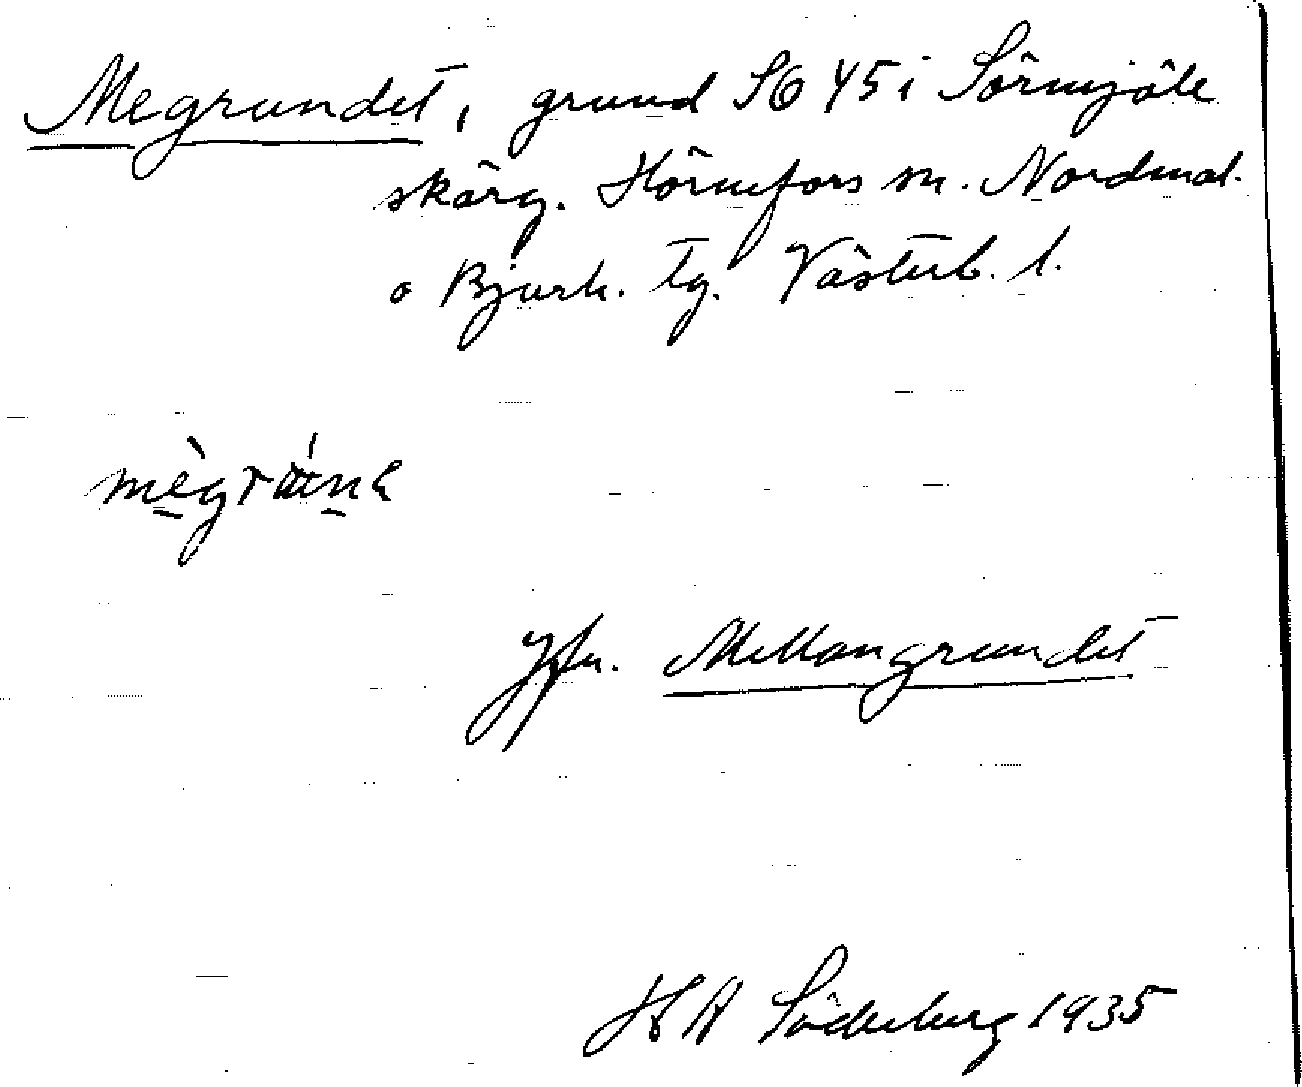 Megrundet, grund SO 45 i Sörmjöle
skärg. Hörnefors sn. Nordmal.
o Bjurh. tg. Västerb. l.
Jfr. Mellangrundet
H A Söderberg 1935